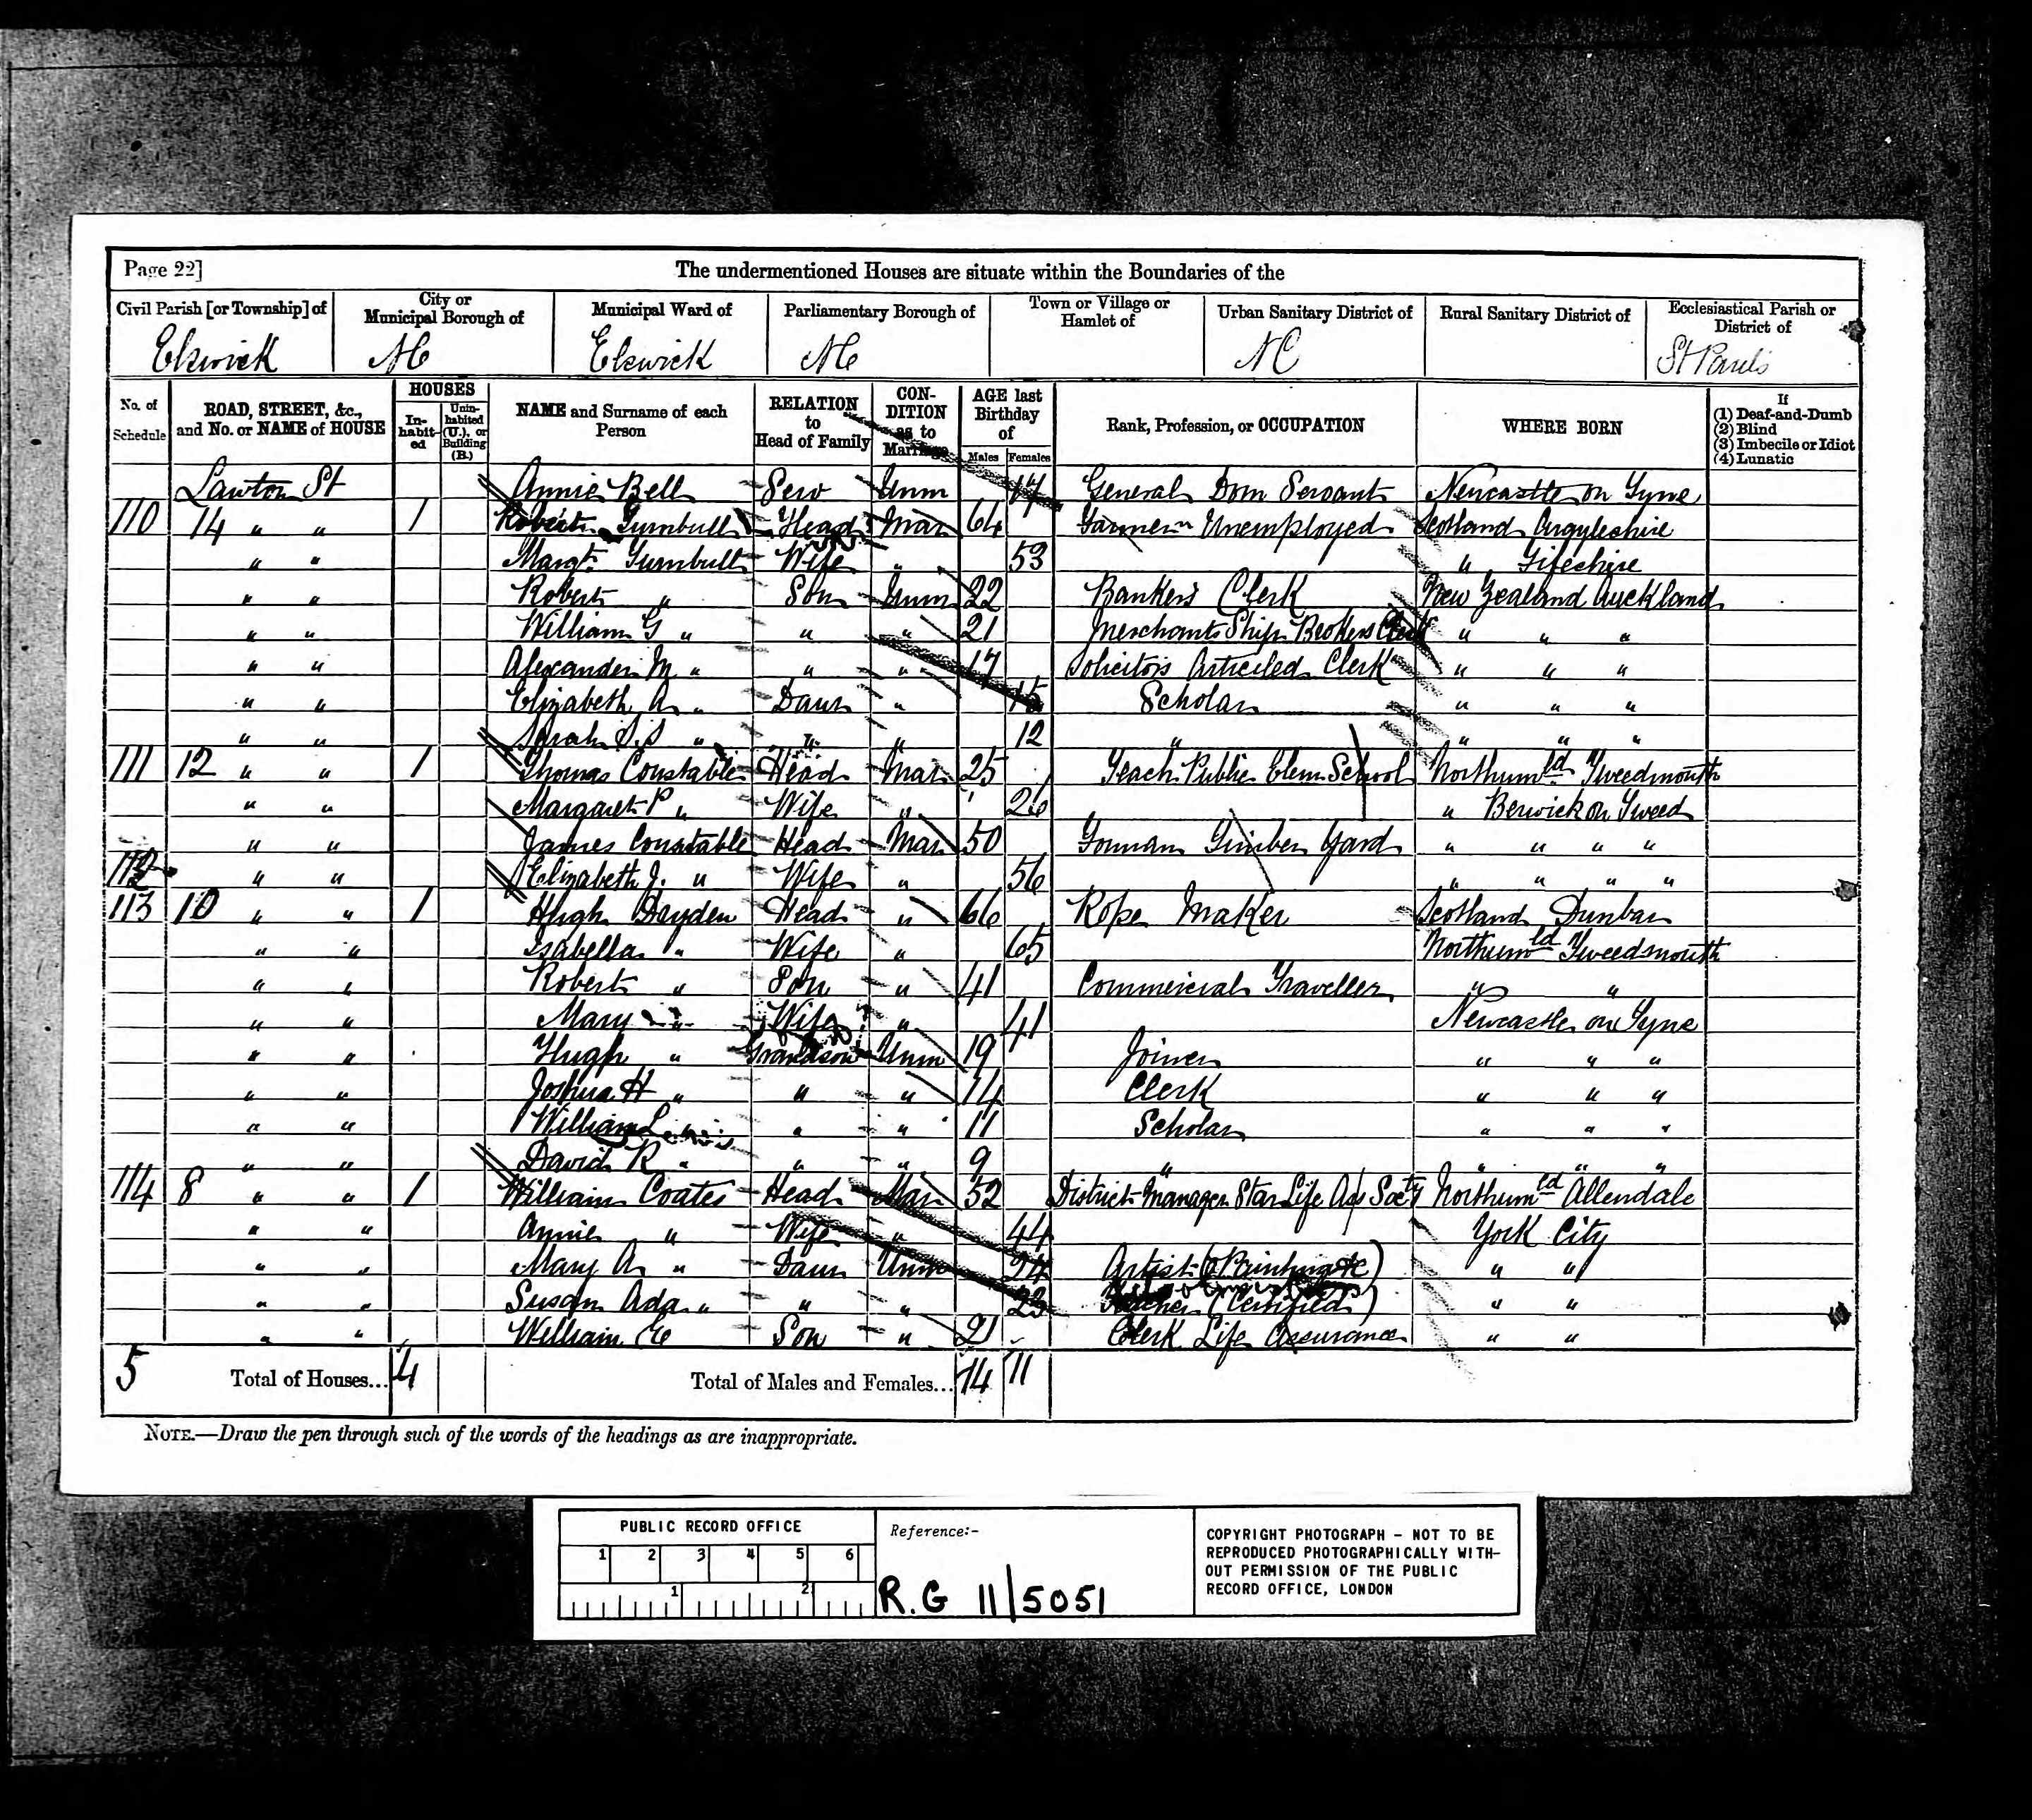 Page 22] The undermentioned Houses are situate within the Boundaries of the
Civil Parish [or Township] of City or Municipal Borough of Municipal Ward of Parliamentary Borough of Town or Village or Hamlet of Urban Sanitary District of Rural Sanitary District of Ecclesiastical Parish or District of
Elswick NC Elswick NC NC St Pauls
No. of Schedule ROAD, STREET, &c., and No. or NAME of HOUSE HOUSES In-habit-ed Unin-habited (U.), or Building (B.) NAME and Surname of each Person RELATION to Head of Family CON-DITION as to Marriage AGE last Birthday of Males Females Rank, Profession, or OCCUPATION WHERE BORN If (1) Deaf-and-Dumb (2) Blind (3) Imbecile or Idiot (4) Lunatic
Lawton St Annie Bell Serv Unm 17 General Dom Servant Newcastle on Tyne
110 14 " " 1 Robert Turnbull Head Mar 64 Farmer Unemployed Scotland Argyleshire
" " Margt Turnbull Wife " 53 " Fifeshire
" " Robert " Son Unm 22 Bankers Clerk New Zealand Auckland
" " William G " " " 21 Merchants Ship Brokers Clerk " " "
" " Alexander M " " " 17 Solicitors Articiled Clerk " " "
" " Elizabeth A " Daur " 15 Scholar " " "
" " Sarah " " " 12 " " " "
111 12 " " 1 Thomas Constable Head Mar 25 Teach Public Elem School Northumld Tweedmouth
" " Margaret P " Wife " 26 " Berwick on Tweed
" " James Constable Head Mar 50 Forman Timber Yard " " " "
112 " " Elizabeth J. " Wife " 56 " " " "
113 10 " " 1 Hugh Dryden Head " 66 Rope Maker Scotland Dunbar
" " Isabella " Wife " 65 Northumld Tweedmouth
" " Robert " Son " 41 Commercial Traveller " "
" " Mary " Wife " 41 Newcastle on Tyne
" " Hugh " Grandson Unm 19 Joiner " " "
" " Joshua H " " " 14 Clerk " " "
" " William " " " 11 Scholar " " "
" " David R " " " 9 " " " "
114 8 " " 1 William Coates Head Mar 52 District Manager Star Life Ass Socty Northumld Allendale
" " Annie " Wife " 44 York City
" " Mary A " Daur Unm 24 Artist " "
" " Susan Ada " " " 23 Teacher (Certified) " "
" " William E Son " 21 Clerk Life Assurance " "
5 Total of Houses... 4 Total of Males and Females... 14 11
NOTE.—Draw the pen through such of the words of the headings as are inappropriate.
PUBLIC RECORD OFFICE
1 2 3 4 5 6
1 2
Reference:-
R.G 11/5051
COPYRIGHT PHOTOGRAPH - NOT TO BE
REPRODUCED PHOTOGRAPHICALLY WITH-
OUT PERMISSION OF THE PUBLIC
RECORD OFFICE, LONDON